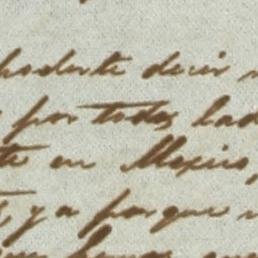 poderte decir
por todos lad
te en Mexico,
, ya porque